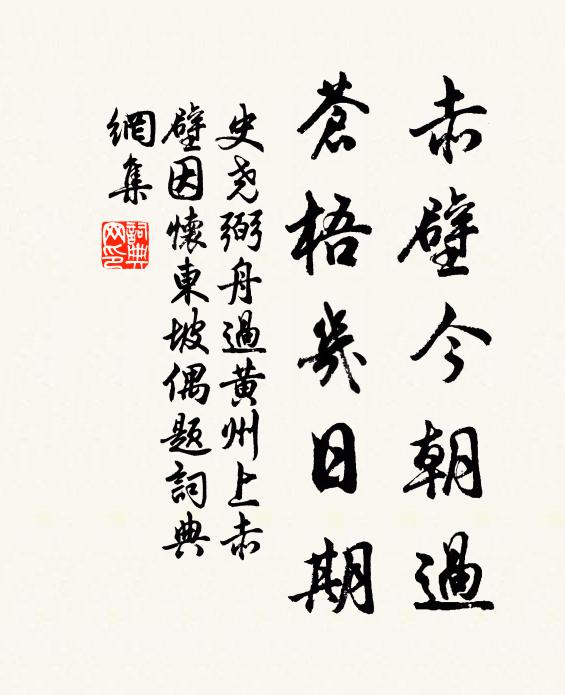 赤壁今朝過
蒼梧幾日期
史堯弼舟過黃州上赤
壁因懷東坡偶題詞典
網集
詞典
网印